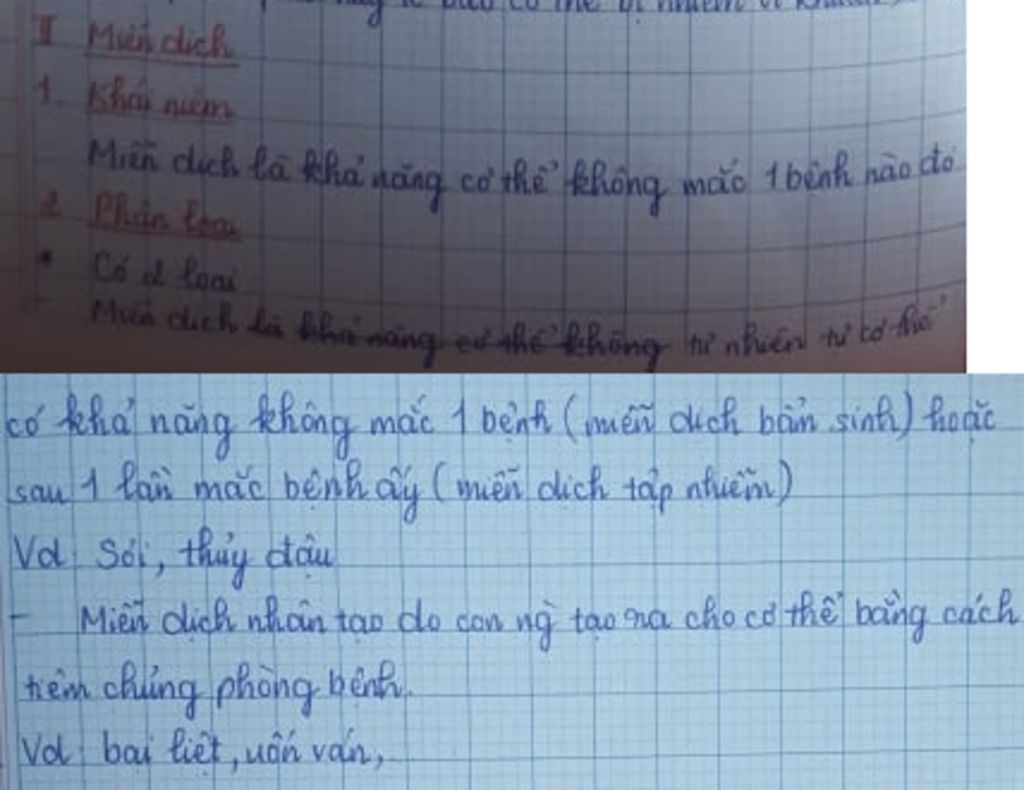 II Miễn dịch
1. Khái niệm
Miễn dịch là khả năng cơ thể không mắc 1 bệnh nào đó
2. Phân loại
* Có 2 loại
- Miễn dịch là khả năng cơ thể không tự nhiên tự cơ thể
có khả năng không mắc 1 bệnh (miễn dịch bẩm sinh) hoặc
sau 1 lần mắc bệnh ấy (miễn dịch tập nhiễm)
Vd: Sởi, thủy đậu
- Miễn dịch nhân tạo do con ng` tạo ra cho cơ thể bằng cách
tiêm chủng phòng bệnh.
Vd: bại liệt, uốn ván,